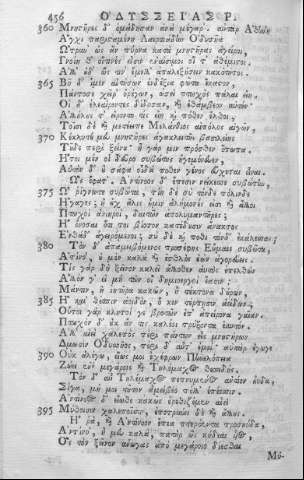 456 ΟΔΥΣΣΕΙΑΣ Ρ.
360 Μνηστῆρες δ' ὁμάδησαν ἀνὰ μέγαρ'· αὐτὰρ Ἀθήνη
Ἄγχι παρισταμένη Λαερτιάδην Ὀδυσῆα
Ὤτρυν' ὡς ἂν πύρνα κατὰ μνηστῆρας ἀγείροι,
Γνοίη θ' οἵτινές εἰσιν ἐναίσιμοι οἵ τ' ἀθέμιστοι·
Ἀλλ' οὐδ' ὧς τιν' ἔμελλ' ἀπαλεξήσειν κακότητος.
365 Βῆ δ' ἴμεν αἰτήσων ἐνδέξια φῶτα ἕκαστον
Πάντοσε χεῖρ' ὀρέγων, ὡσεὶ πτωχὸς πάλαι εἴη.
Οἱ δ' ἐλεαίροντες δίδοσαν, καὶ ἐθάμβεον αὐτὸν·
Ἀλλήλους τ' εἴροντο τίς εἴη καὶ πόθεν ἔλθοι.
Τοῖσι δὲ καὶ μετέειπε Μελάνθιος αἰπόλος αἰγῶν,
370 Κέκλυτέ μευ μνηστῆρες ἀγακλειτῆς βασιλείης
Τοῦδε περὶ ξείνου· ἦ γάρ μιν πρόσθεν ὄπωπα.
Ἤτοι μέν οἱ δεῦρο συβώτης ἡγεμόνευεν,
Αὐτὸν δ' οὐ σάφα οἶδα πόθεν γένος εὔχεται εἶναι.
Ὣς ἔφατ', Ἀντίνοος δ' ἔπεσιν νείκεσσε συβώτην,
375 Ὦ ῥίγνωτε συβῶτα, τίη δὲ σὺ τόνδε πόλινδε
Ἤγαγες; ἦ οὐχ ἅλις ἥμιν ἀλήμονές εἰσι καὶ ἄλλοι
Πτωχοὶ ἀνιηροὶ, δαιτῶν ἀπολυμαντῆρες;
Ἦ ὄνοσαι ὅτι τοι βίοτον κατέδουσιν ἄνακτος
Ἐνθάδ' ἀγειρόμενοι, σὺ δὲ καί ποθι τόνδ' ἐκάλεσσας;
380 Τὸν δ' ἀπαμειβόμενος προσέφης Εὔμαιε συβῶτα,
Ἀντίνο', οὐ μὲν καλὰ καὶ ἐσθλὸς ἐὼν ἀγορεύεις·
Τίς γὰρ δὴ ξεῖνον καλεῖ ἄλλοθεν αὐτὸς ἐπελθὼν
Ἄλλον γ' εἰ μὴ τῶν οἳ δημιοεργοὶ ἔασιν;
Μάντιν, ἢ ἰητῆρα κακῶν, ἢ τέκτονα δούρων,
385 Ἢ καὶ θέσπιν ἀοιδὸν, ὅ κεν τέρπησιν ἀείδων.
Οὗτοι γὰρ κλητοί γε βροτῶν ἐπ' ἀπείρονα γαῖαν.
Πτωχὸν δ' οὐκ ἄν τις καλέοι τρύξοντα ἑαυτόν.
Ἀλλ' αἰεὶ χαλεπὸς περὶ πάντων εἰς μνηστήρων
Δμωσὶν Ὀδυσσῆος, πέρι δ' αὖτ' ἐμοί· αὐτὰρ ἔγωγε
390 Οὐκ ἀλέγω, ἕως μοι ἐχέφρων Πηνελόπεια
Ζώει ἐνὶ μεγάροις καὶ Τηλέμαχος θεοειδής.
Τὸν δ' αὖ Τηλέμαχος πεπνυμένος ἀντίον ηὔδα,
Σίγα, μή μοι τοῦτον ἀμείβεο πόλλ' ἐπέεσσιν.
Ἀντίνοος δ' εἴωθε κακῶς ἐρεθιζέμεν αἰεὶ
395 Μύθοισιν χαλεποῖσιν, ἐποτρύνει δὲ καὶ ἄλλους.
Ἦ ῥα, καὶ Ἀντίνοον ἔπεα πτερόεντα προσηύδα,
Ἀντίνο', ἦ μευ καλὰ, πατὴρ ὣς κήδεαι υἷος,
Ὃς τὸν ξεῖνον ἄνωγας ἀπὸ μεγάροιο δίεσθαι
Μύ-